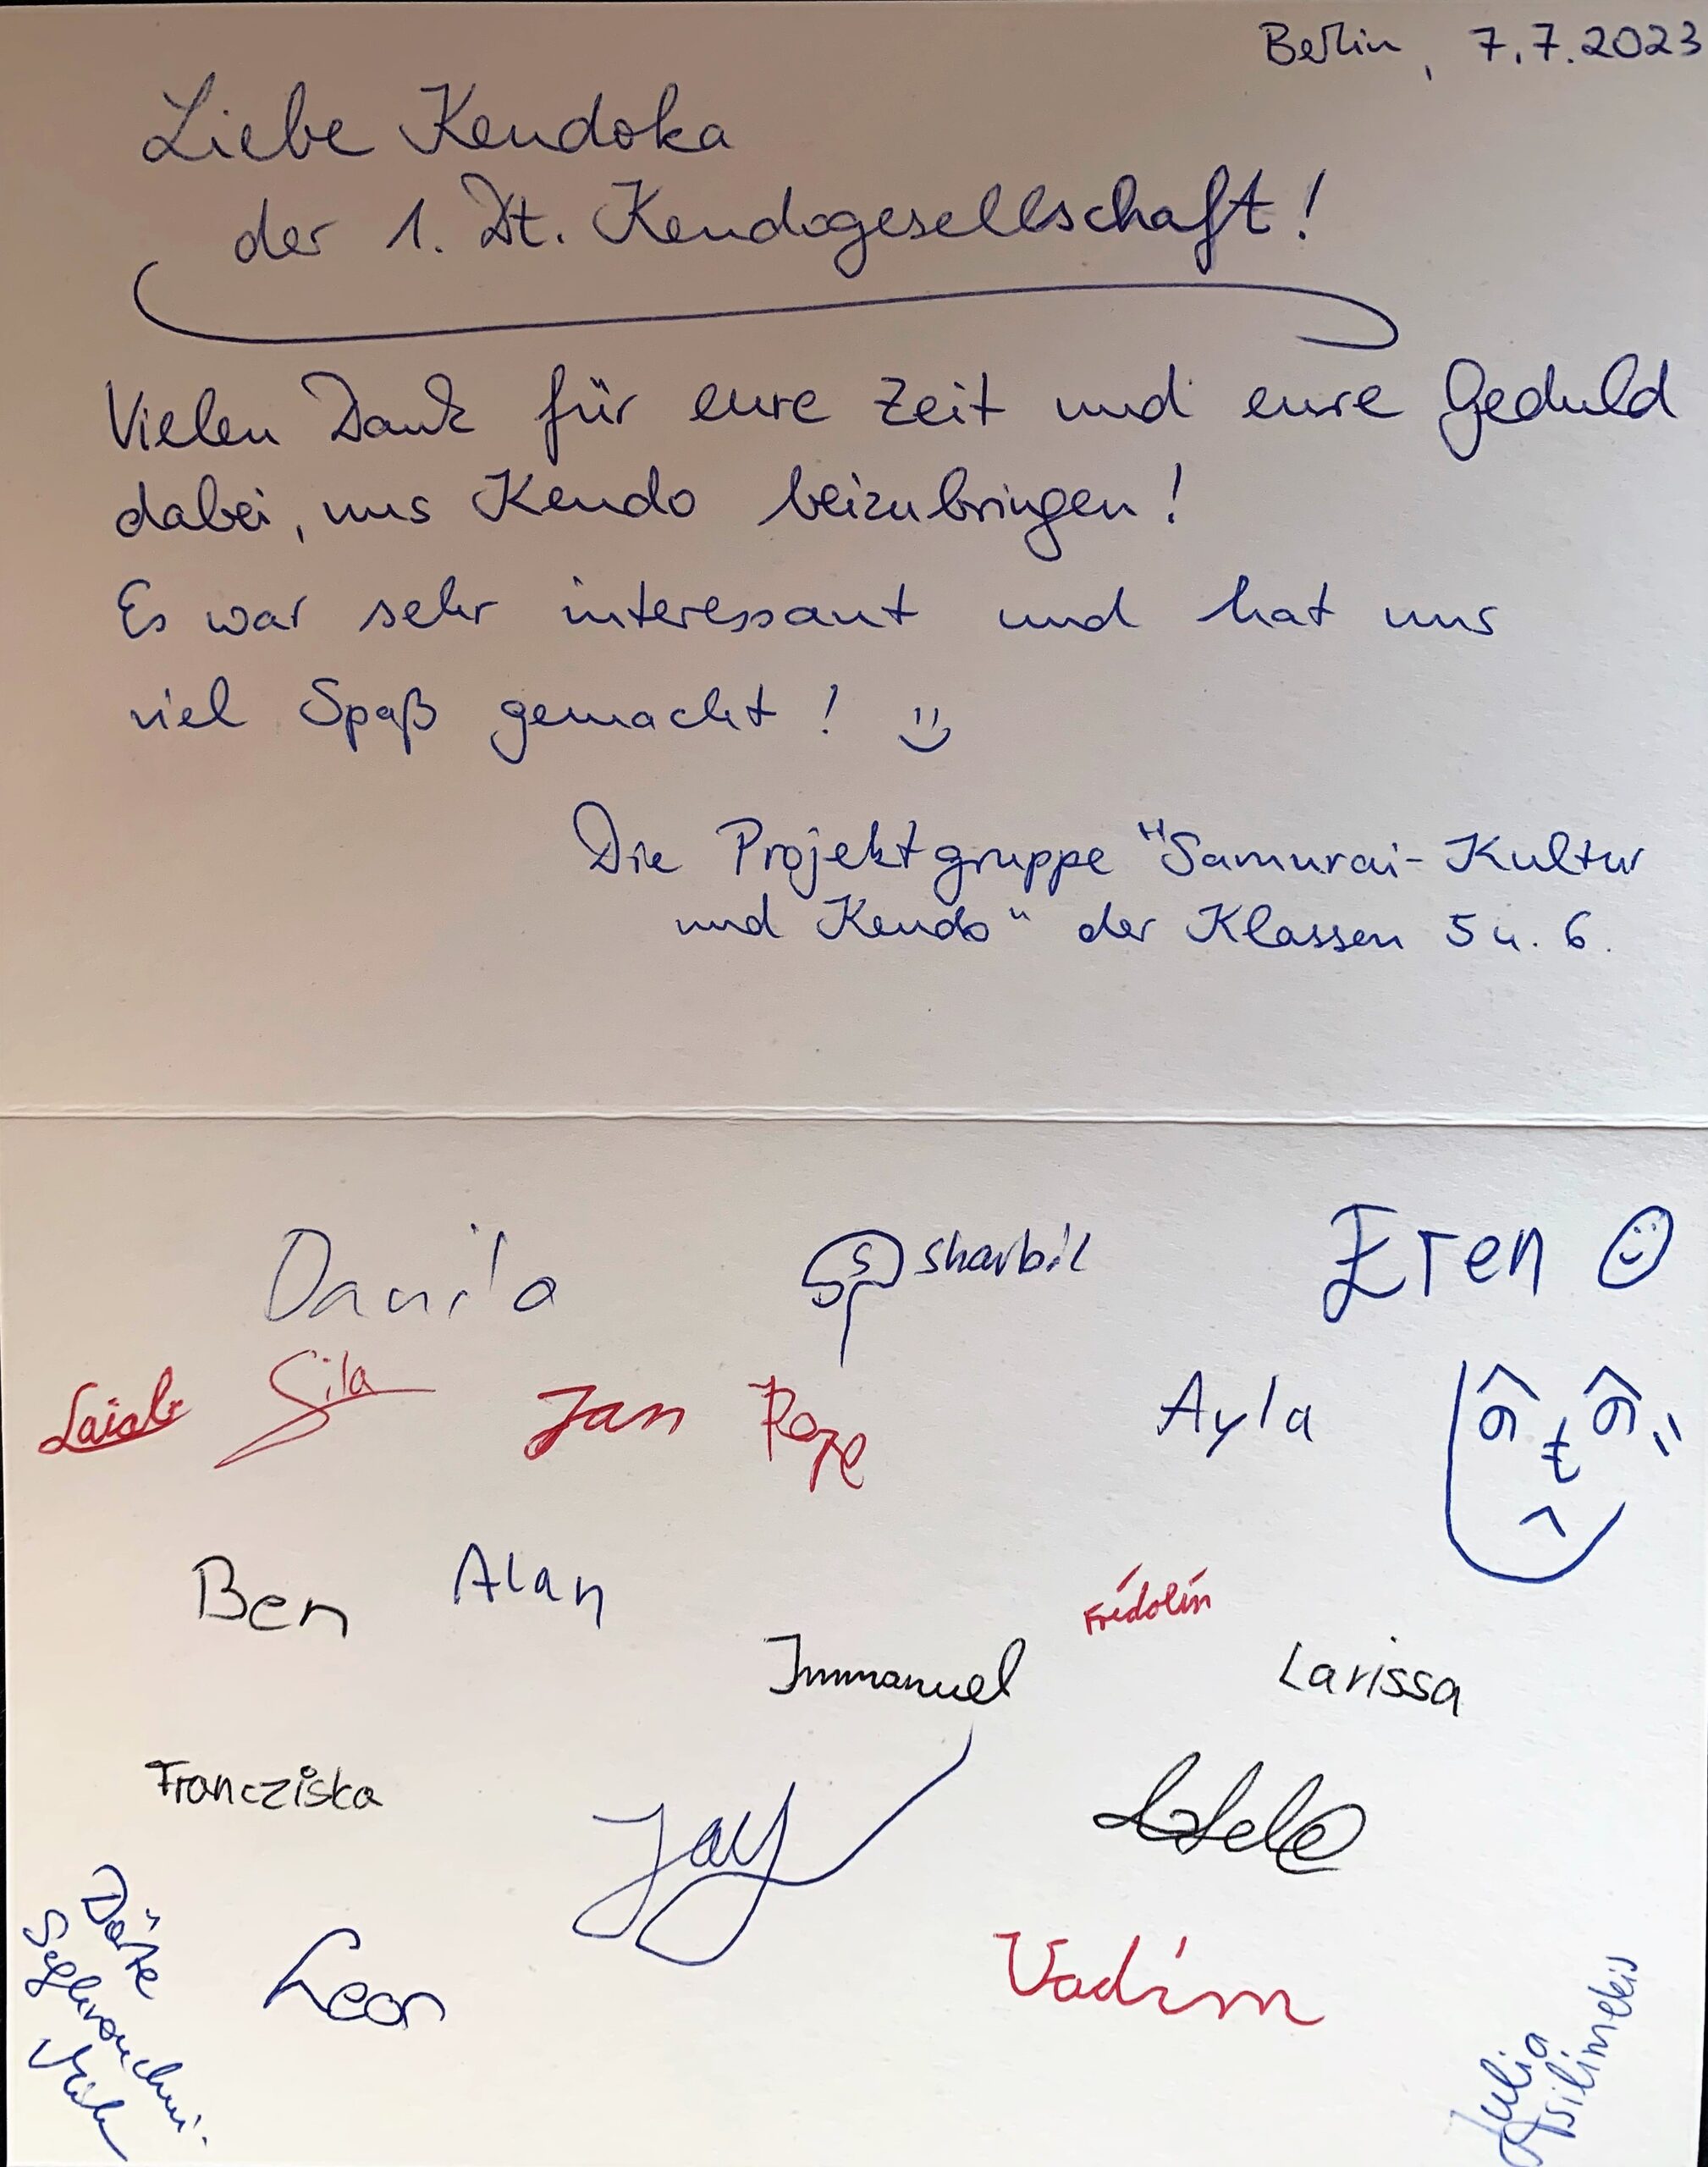 Berlin, 7.7.2023
Liebe Kendoka
der 1. Dt. Kendogesellschaft!
Vielen Dank für eure Zeit und eure Geduld
dabei, uns Kendo beizubringen!
Es war sehr interessant und hat uns
viel Spaß gemacht!
Die Projektgruppe "Samurai-Kultur
und Kendo" der Klassen 5 u. 6.
Danilo sharbil Eren
Sila Jan Ayla
Ben Alan
Fridolin
Immanuel Larissa
Francziska
Jay
Leon Vadim
Dörte
Julia